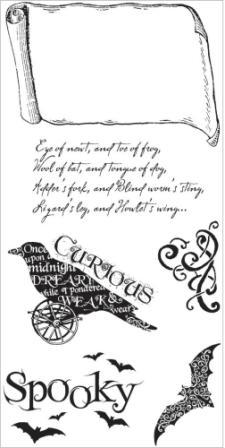 Eye of newt, and toe of frog,
Wool of bat, and tongue of dog,
Adder's fork, and Blind worm's sting,
Lizard's leg, and Howlet's wing...
CURIOUS
Once
upon a
midnight
DREARY
while I pondered
WEAK &
weary
Spooky